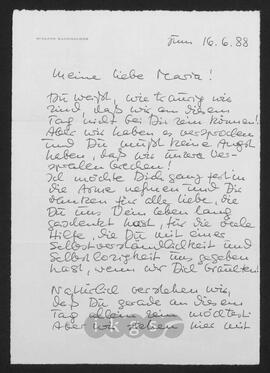 16.6.88
Meine liebe Maria!
Du weißt, wie traurig wir
sind, daß wir an diesem
Tag nicht bei Dir sein können!
Aber wir haben es versprochen
und Du mußt keine Angst
haben, daß wir unser Ver-
sprechen brechen.
Ich möchte Dich ganz fest in
die Arme nehmen und Dir
danken für alle Liebe, die
Du uns Dein Leben lang
geschenkt hast, für die viele
Hilfe, die Du mit einer
Selbstverständlichkeit und
Selbstlosigkeit uns gegeben
hast, wenn wir Dich brauchten!
Natürlich verstehen wir,
daß Du gerade an diesem
Tag allein sein möchtest.
Aber wir stehen hier mit